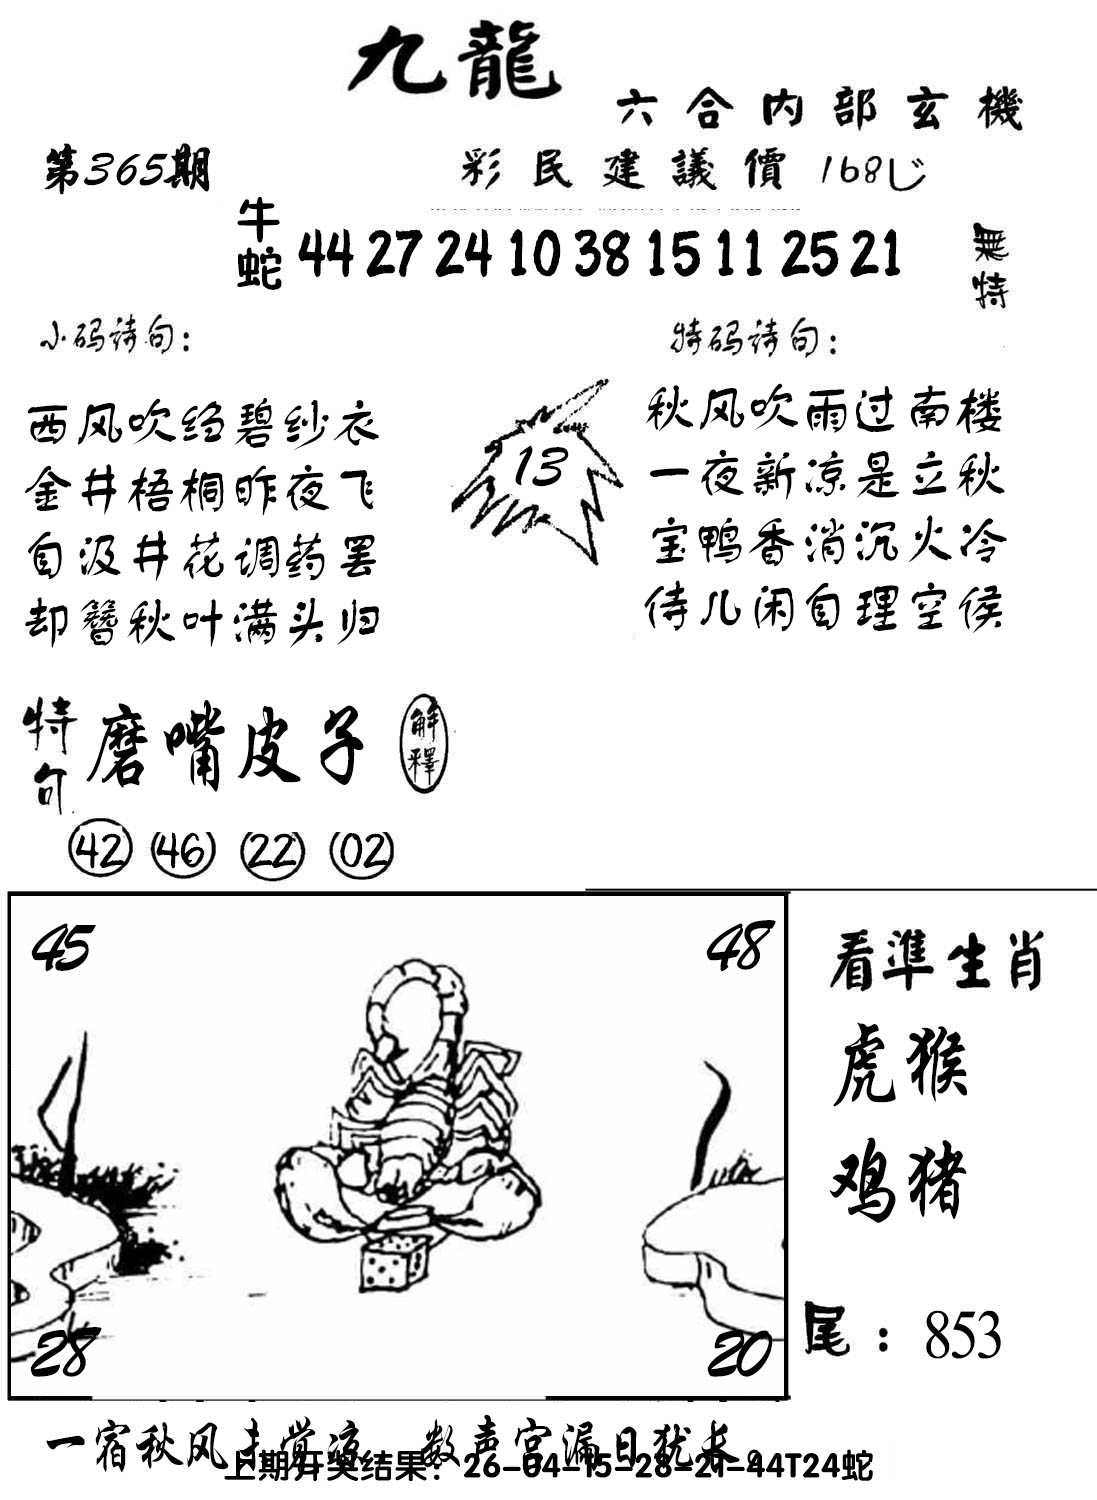 九龍
六合内部玄機
第365期
彩民建議價168
牛
蛇
44 27 24 10 38 15 11 25 21
無特
小码诗句：
特码诗句：
西风吹绉碧纱衣
金井梧桐昨夜飞
自汲井花调药罢
却簪秋叶满头归
13
秋风吹雨过南楼
一夜新凉是立秋
宝鸭香消沉火冷
侍儿闲自理空侯
特句
磨嘴皮子
解釋
42 46 22 02
45
48
28
20
看準生肖
虎猴
鸡猪
尾：853
一宿秋风 数声宫漏日犹
上期开奖结果：26-04-15-28-21-44T24蛇